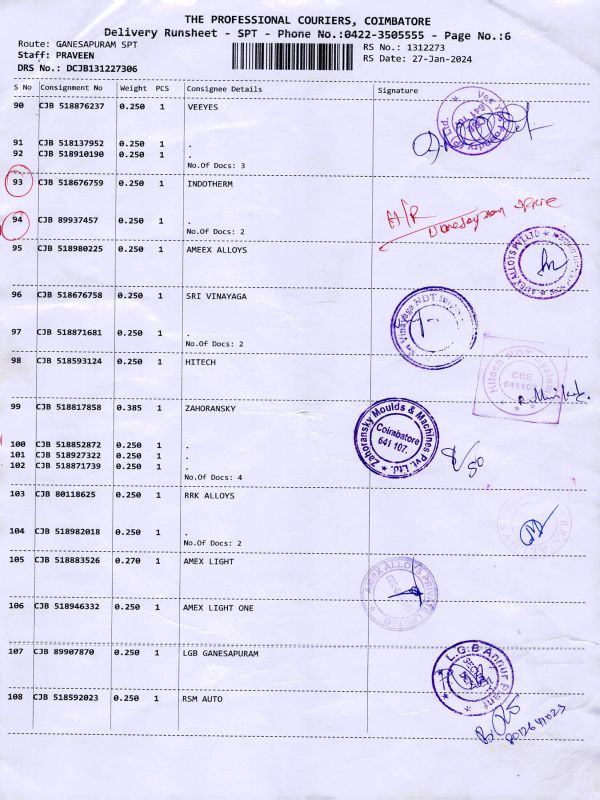 THE PROFESSIONAL COURIERS, COIMBATORE
Delivery Runsheet - SPT - Phone No.:0422-3505555 - Page No.:6
Route: GANESAPURAM SPT
RS No.: 1312273
Staff: PRAVEEN
RS Date: 27-Jan-2024
DRS No.: DCJB131227306
S No Consignment No Weight PCS Consignee Details Signature
90 CJB 518876237 0.250 1 VEEYES
91 CJB 518137952 0.250 1 .
92 CJB 518910190 0.250 1 .
No.Of Docs: 3
93 CJB 518676759 0.250 1 INDOTHERM
A/R
94 CJB 89937457 0.250 1 .
No.Of Docs: 2
95 CJB 518980225 0.250 1 AMEEX ALLOYS
96 CJB 518676758 0.250 1 SRI VINAYAGA
97 CJB 518871681 0.250 1 .
No.Of Docs: 2
98 CJB 518593124 0.250 1 HITECH
CBE
641 107
99 CJB 518817858 0.385 1 ZAHORANSKY
Zahoransky Moulds & Machines Pvt. Ltd.
Coimbatore
641 107.
100 CJB 518852872 0.250 1 .
101 CJB 518927322 0.250 1 .
102 CJB 518871739 0.250 1 .
No.Of Docs: 4
103 CJB 80118625 0.250 1 RRK ALLOYS
104 CJB 518982018 0.250 1 .
No.Of Docs: 2
105 CJB 518883526 0.270 1 AMEX LIGHT
106 CJB 518946332 0.250 1 AMEX LIGHT ONE
107 CJB 89907870 0.250 1 LGB GANESAPURAM
L.G.B Annur Plant
108 CJB 518592023 0.250 1 RSM AUTO